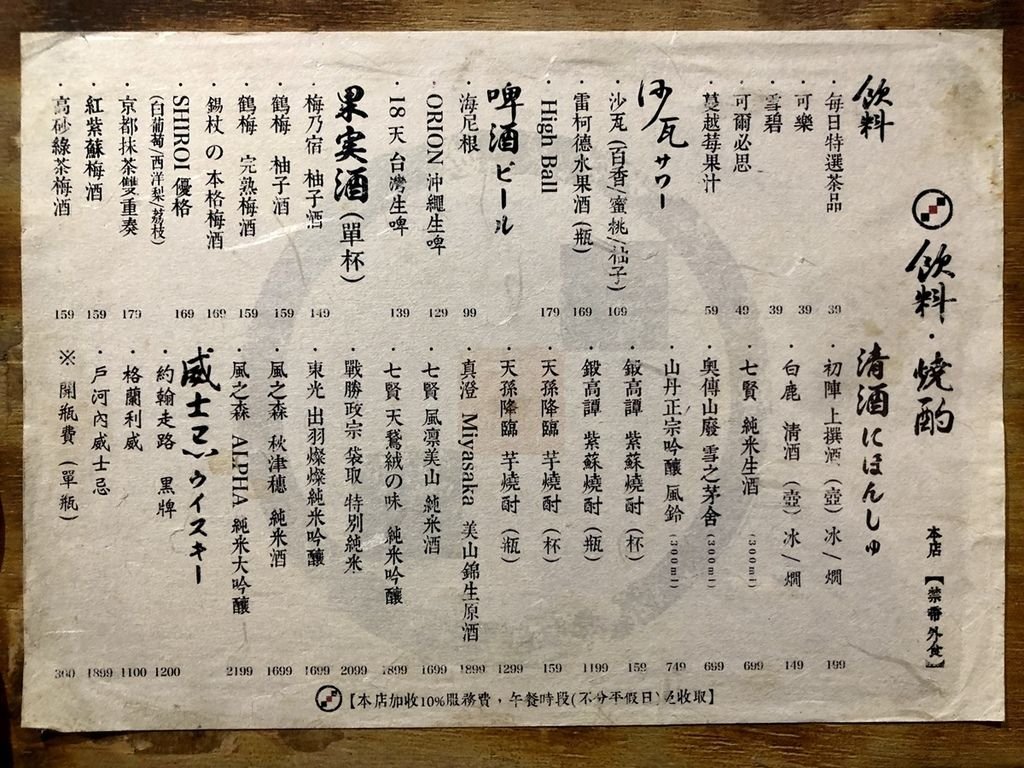 飲料・燒酌
本店【禁帶外食】
飲料
・每日特選茶品 39
・可樂 39
・雪碧 39
・可爾必思 49
・蔓越莓果汁 59
沙瓦 サワー
・沙瓦(百香/蜜桃/柚子) 169
・雷柯德水果酒(瓶) 169
・High Ball 179
啤酒 ビール
・海尼根 99
・ORION 沖繩生啤 129
・18天台灣生啤 139
果実酒(單杯)
・梅乃宿 柚子酒 149
・鶴梅 柚子酒 159
・鶴梅 完熟梅酒 159
・錫杖の本格梅酒 169
・SHIROI 優格 169
(白葡萄/西洋梨/荔枝)
・京都抹茶雙重奏 179
・紅紫蘇梅酒 159
・高砂綠茶梅酒 159
清酒 にほんしゅ
・初陣上撰酒 (壺) 冰/燗 199
・白鹿 清酒 (壺) 冰/燗 149
・七賢 純米生酒 (300ml) 699
・奧傳山廢 雪之茅舍 (300ml) 699
・山丹正宗吟釀 風鈴 (300ml) 749
・鍛高譚 紫蘇燒酎 (杯) 159
・鍛高譚 紫蘇燒酎 (瓶) 1199
・天孫降臨 芋燒酎 (杯) 159
・天孫降臨 芋燒酎 (瓶) 1299
・真澄 Miyasaka 美山錦生原酒 1899
・七賢 風凛美山 純米酒 1699
・七賢 天鵞絨の味 純米吟釀 1899
・戰勝政宗 袋取 特別純米 2099
・東光 出羽燦燦純米吟釀 1699
・風之森 秋津穗 純米酒 1699
・風之森 ALPHA 純米大吟釀 2199
威士忌 ウイスキー
・約翰走路 黑牌 1200
・格蘭利威 1100
・戶河內威士忌 1899
※ 開瓶費 (單瓶) 300
【本店加收10%服務費，午餐時段(不分平假日)收取】